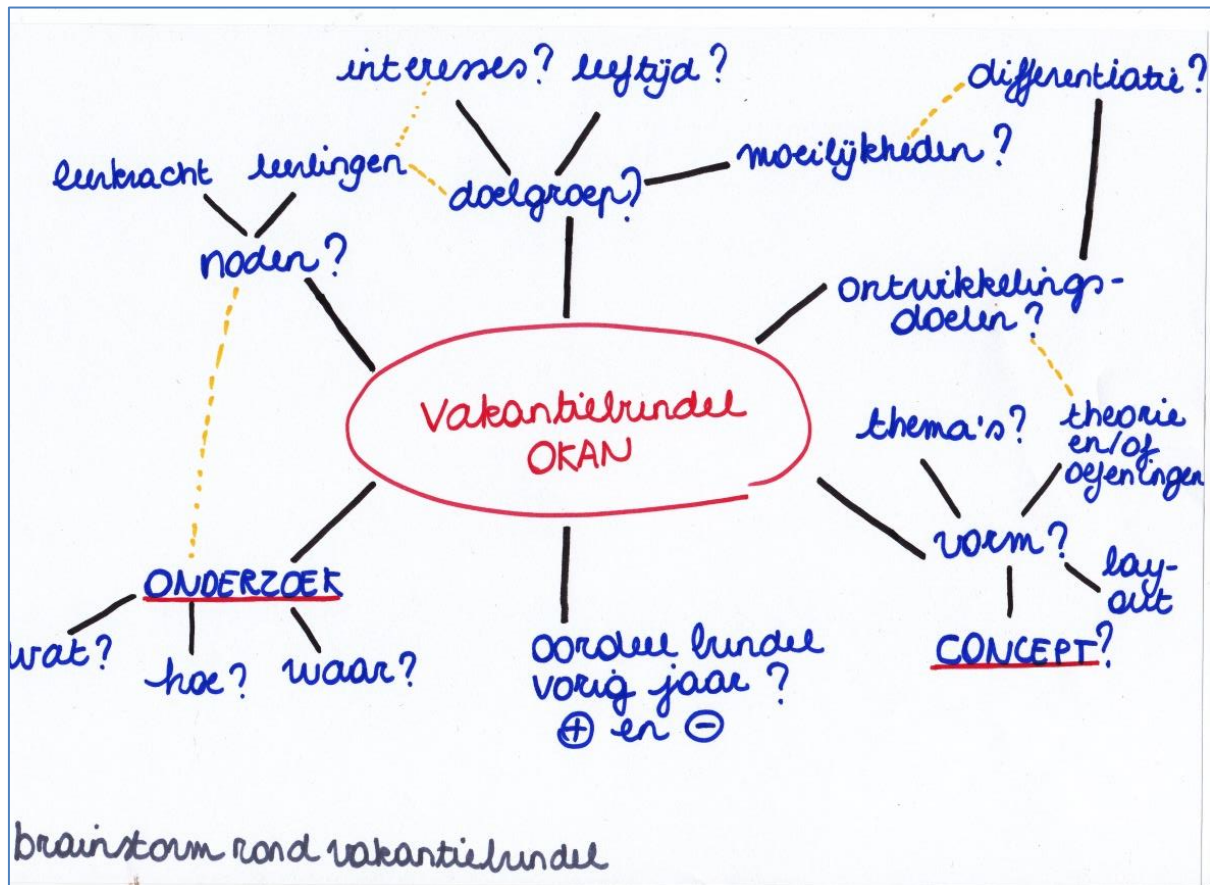 interesses?
leeftijd?
differentiatie?
leerkracht
leerlingen
moeilijkheden?
doelgroep?
noden?
ontwikkelings-
doelen?
Vakantiebundel
OKAN
thema's?
theorie
en/of
oefeningen
vorm?
lay-
out
CONCEPT?
ONDERZOEK
wat?
hoe?
waar?
oordeel bundel
vorig jaar?
+ en -
brainstorm rond vakantiebundel